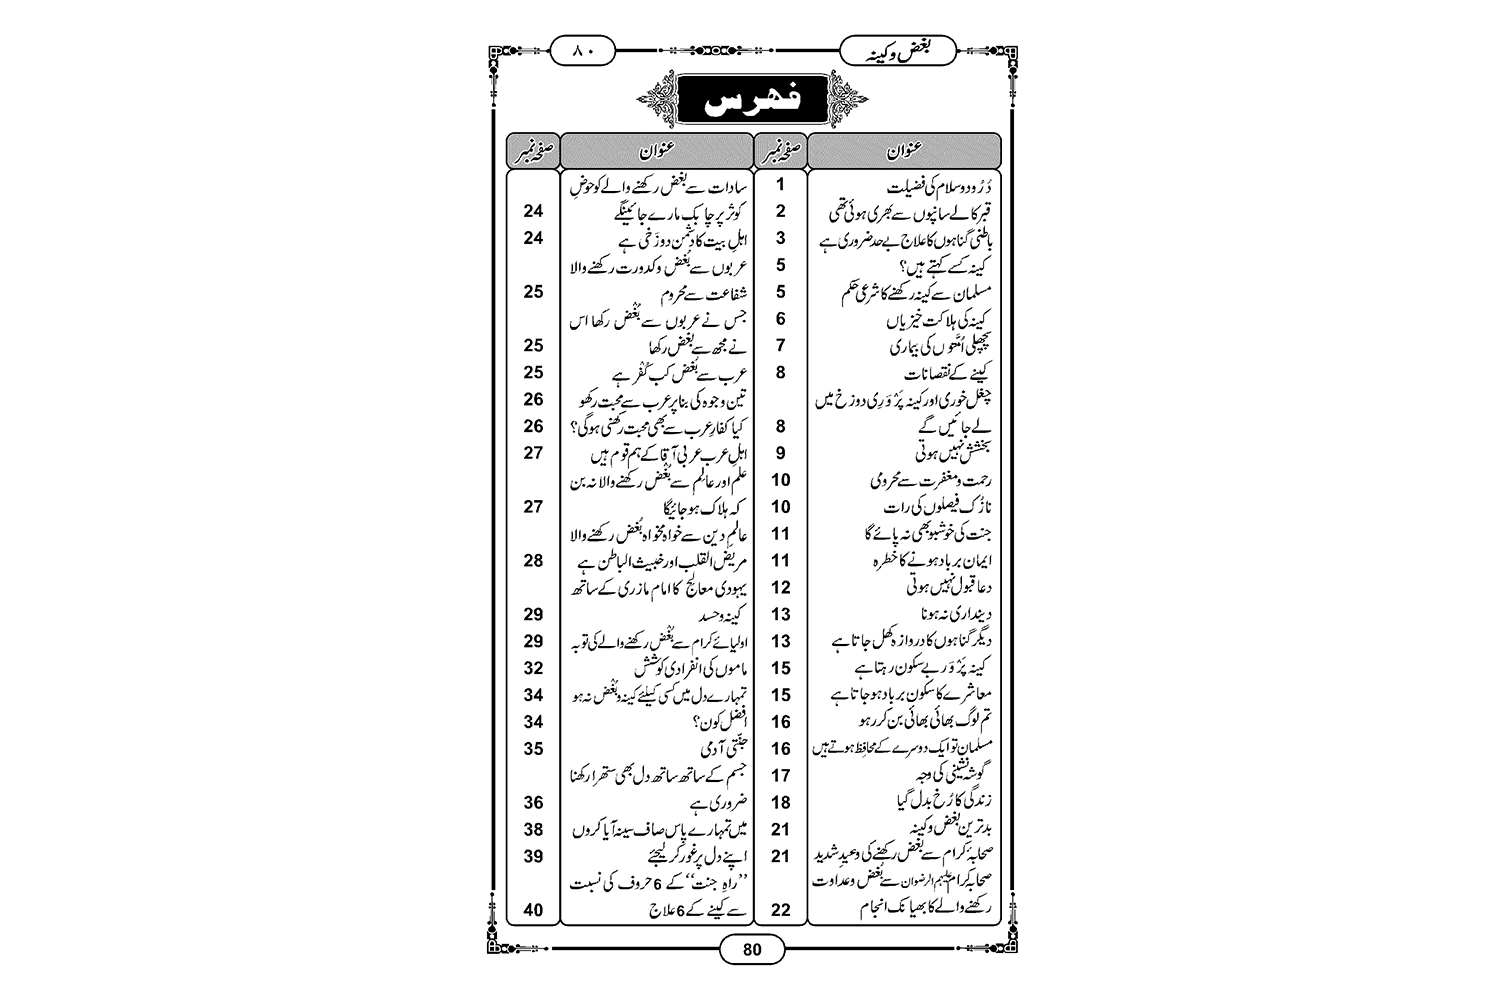 بغض و کینہ
۸۰
فہرس
عنوان
صفحہ نمبر
عنوان
صفحہ نمبر
دُرُود و سلام کی فضیلت 1
قبر کالے سانپوں سے بھری ہوئی تھی 2
باطنی گناہوں کا علاج بے حد ضروری ہے 3
کینہ کسے کہتے ہیں؟ 5
مسلمان سے کینہ رکھنے کا شرعی حکم 5
کینہ کی ہلاکت خیزیاں 6
پچھلی اُمَّتوں کی بیماری 7
کینے کے نقصانات 8
چغل خوری اور کینہ پَرْوَرِی دوزخ میں
لے جائیں گے 8
بخشش نہیں ہوتی 9
رحمت و مغفرت سے محرومی 10
نازُک فیصلوں کی رات 10
جنت کی خوشبو بھی نہ پائے گا 11
ایمان برباد ہونے کا خطرہ 11
دعا قبول نہیں ہوتی 12
دینداری نہ ہونا 13
دیگر گناہوں کا دروازہ کھل جاتا ہے 13
کینہ پَرْوَر بے سکون رہتا ہے 15
معاشرے کا سکون برباد ہو جاتا ہے 15
تم لوگ بھائی بھائی بن کر رہو 16
مسلمان تو ایک دوسرے کے محافِظ ہوتے ہیں 16
گوشہ نشینی کی وجہ 17
زندگی کا رُخ بدل گیا 18
بدترین بغض و کینہ 21
صحابۂ کرام سے بغض رکھنے کی وعیدِ شدید 21
صحابہ کرام علیہم الرضوان سے بُغض و عداوت
رکھنے والے کا بھیانک انجام 22
سادات سے بُغض رکھنے والے کو حوضِ
کوثر پر چابک مارے جائینگے 24
اہلِ بیت کا دشمن دوزَخی ہے 24
عربوں سے بُغض و کدورت رکھنے والا
شفاعت سے محروم 25
جس نے عربوں سے بُغْض رکھا اس
نے مجھ سے بغض رکھا 25
عرب سے بُغض کب کُفْر ہے 25
تین وجوہ کی بنا پر عرب سے محبت رکھو 26
کیا کفارِ عرب سے بھی محبت رکھنی ہوگی؟ 26
اہلِ عرب عربی آقا کے ہم قوم ہیں 27
علم اور عالِم سے بُغْض رکھنے والا نہ بن
کہ ہلاک ہو جائیگا 27
عالمِ دین سے خواہ مخواہ بُغض رکھنے والا
مریضُ القلب اور خبیث الباطن ہے 28
یہودی معالِج کا امام مازری کے ساتھ
کینہ و حسد 29
اولیائے کرام سے بُغْض رکھنے والے کی توبہ 29
ماموں کی انفرادی کوشش 32
تمہارے دل میں کسی کیلئے کینہ و بُغْض نہ ہو 34
افضل کون؟ 34
جنّتی آدمی 35
جسم کے ساتھ ساتھ دل بھی ستھرا رکھنا
ضروری ہے 36
میں تمہارے پاس صاف سینہ آیا کروں 38
اپنے دل پر غور کر لیجئے 39
’’راہِ جنت‘‘ کے 6 حروف کی نسبت
سے کینے کے 6 علاج 40
80